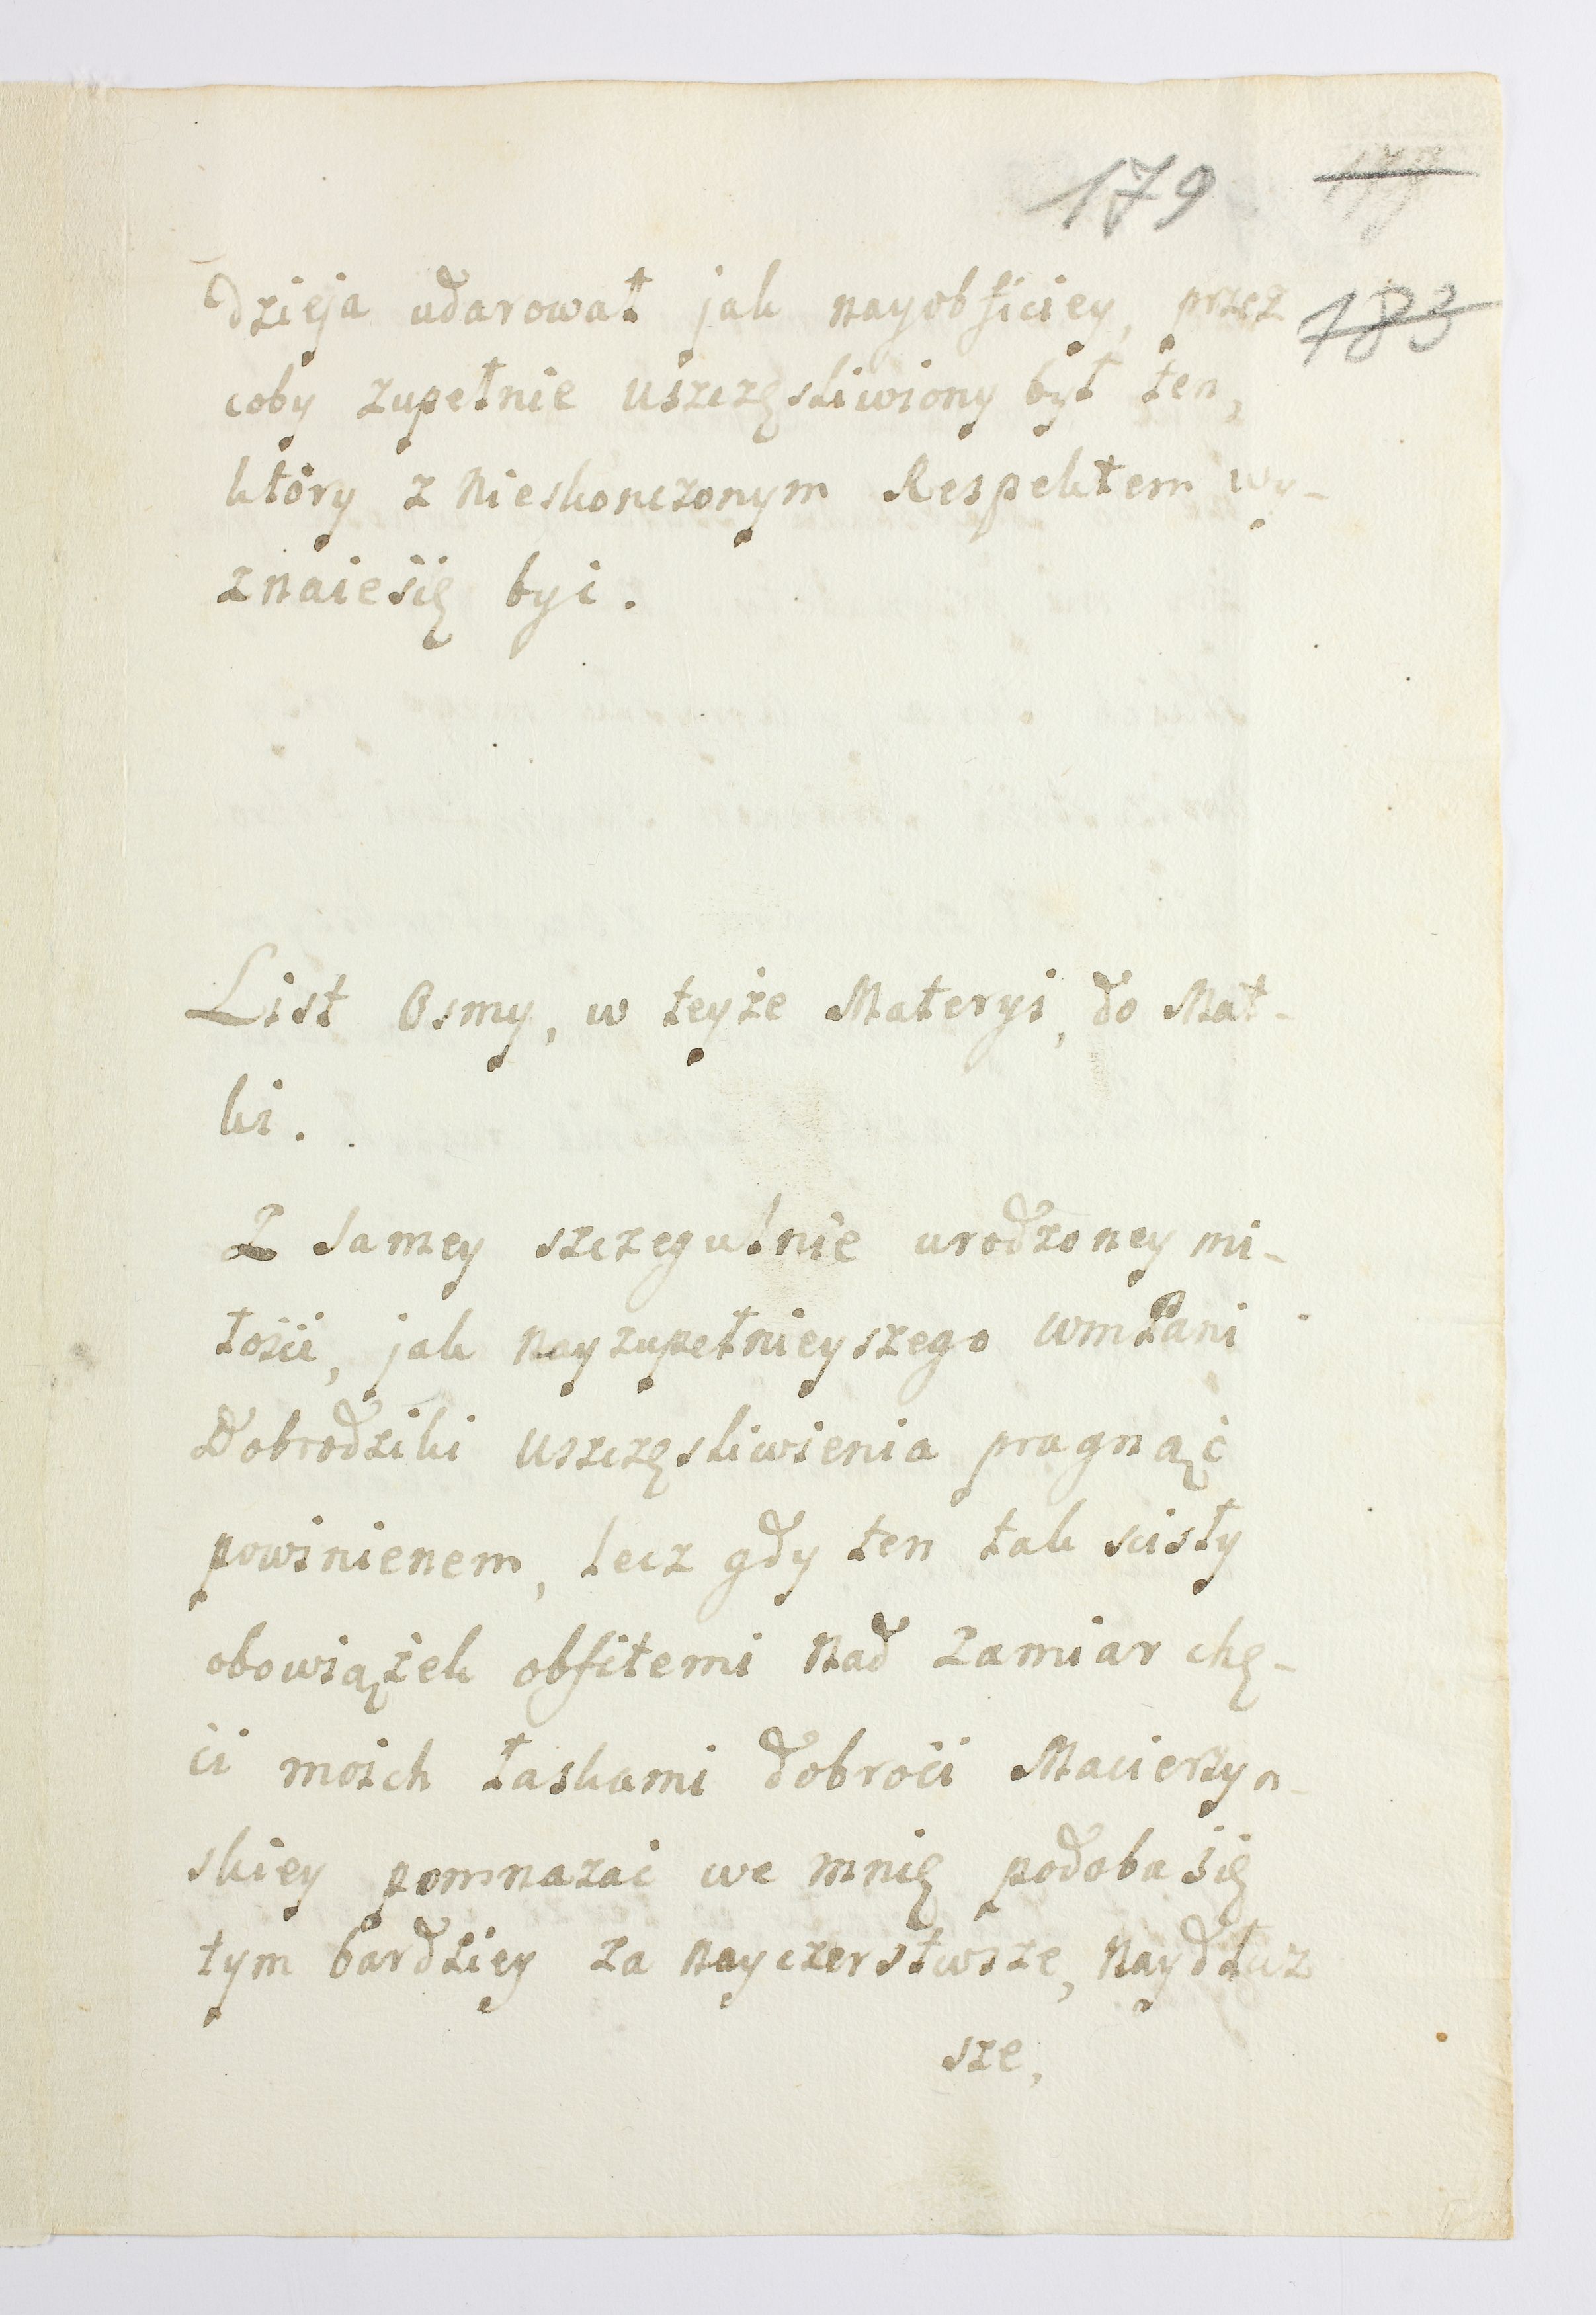 179
183
Dzieja udarował jak nayobficiey, przez
coby zupełnie uszczęsliwiony był ten,
ktöry z nieskonczonym Respektem wy-
znaiesię byc.
List Osmy, w teyże Materyi, do Mat-
ki.
Z samey szczegulnie urodzoney mi-
łości, jak nayzupełnieyszego WmPani
Dobrodziki uszczęsliwienia pragnąć
powinienem, lecz gdy ten tak scisły
obowiązek obfitemi nad zamiar chę-
ci moich łaskami dobroci Macierzyn-
skiey pomnazac we mnię podoba się
tym bardziey za nayczerstwsze, naydłuz
sze,